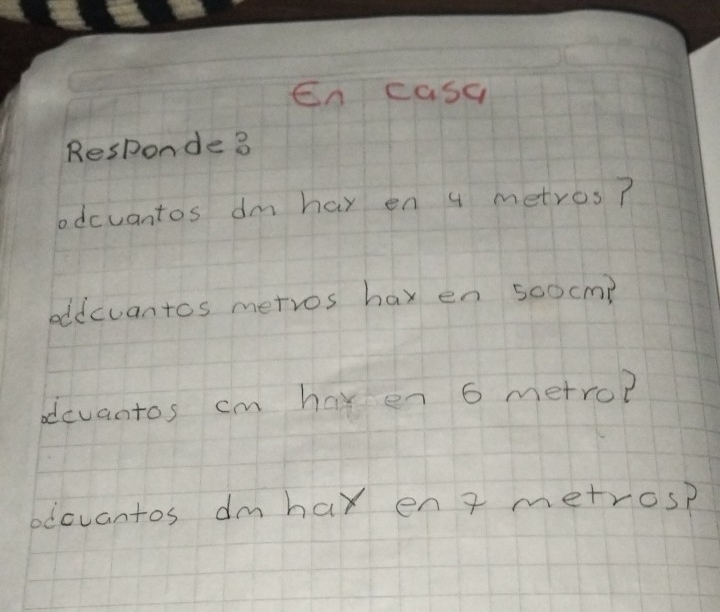 En casa
Responde:
¿cuantos dm hay en 4 metros?
¿cuantos metros hay en 500cm?
¿cuantos cm hay en 6 metro?
¿cuantos dm hay en 7 metros?